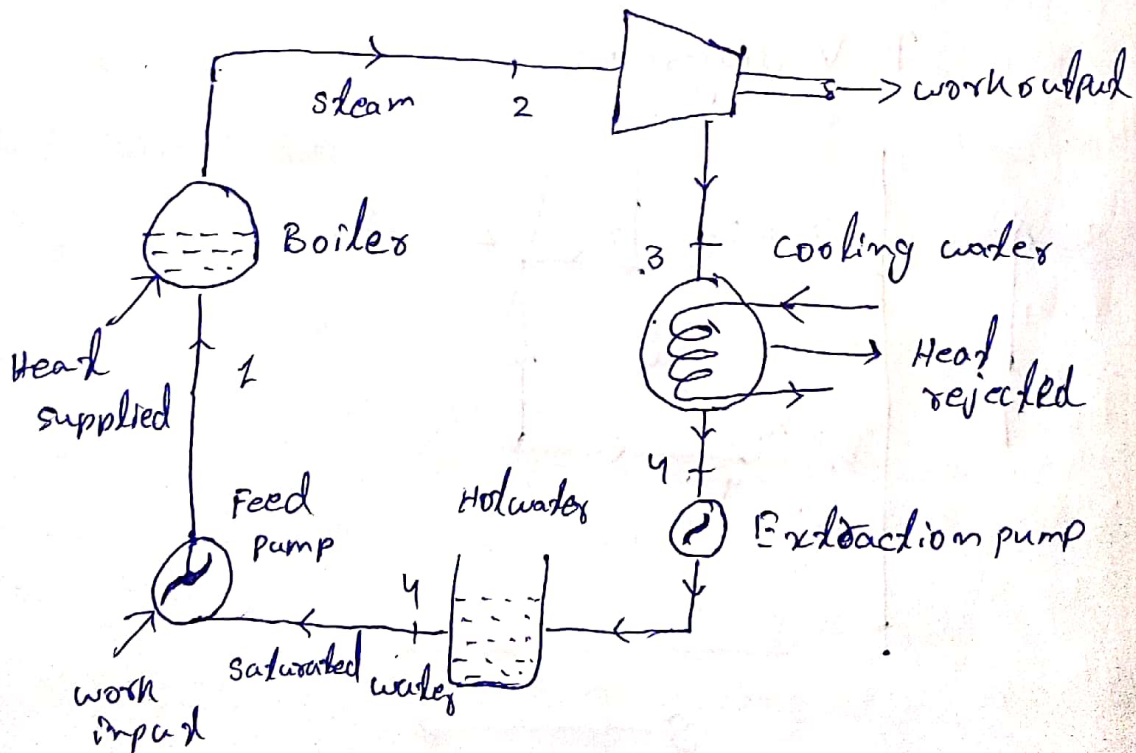 steam
2
work output
Boiler
3
cooling water
Heat
supplied
1
Heat
rejected
4
Feed
pump
Hot water
Extraction pump
4
saturated water
work
input